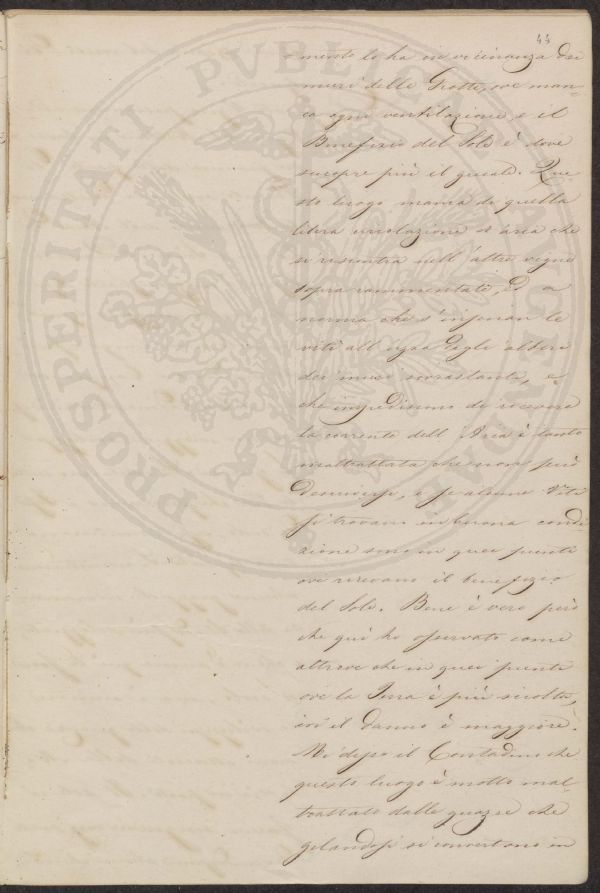 44
mento lo ha in vicinanza dei
muri delle Grotte, ove man=
ca ogni ventilazione, e il
Benefizio del Sole è dove
scuopre più il guasto. Que=
sto luogo manca di quella
libera circolazione d'area che
si riscontra nell'altre vigne
sopra rammentate, ed a
norma che s'inferiscan le
viti all'ugna degli alberi
dei muri sovrastanti, e
che impediscono di ricevere
la corrente dell'Area è tanto
maltrattata che non può
descriversi, e se alcune Viti
si trovano in buona condi=
zione sono in quei punti
ove ricevano il benefizio
del Sole. Bene è vero però
che quì ho osservato come
altrove che in quei punti
ove la Terra è più sciolta,
ivi il danno è maggiore.
Mi disse il Contadino che
questo luogo è molto mal=
trattato dalle guazze che
gelandosi si convertono in
PROSPERITATI PUBLICAE AUGENDAE